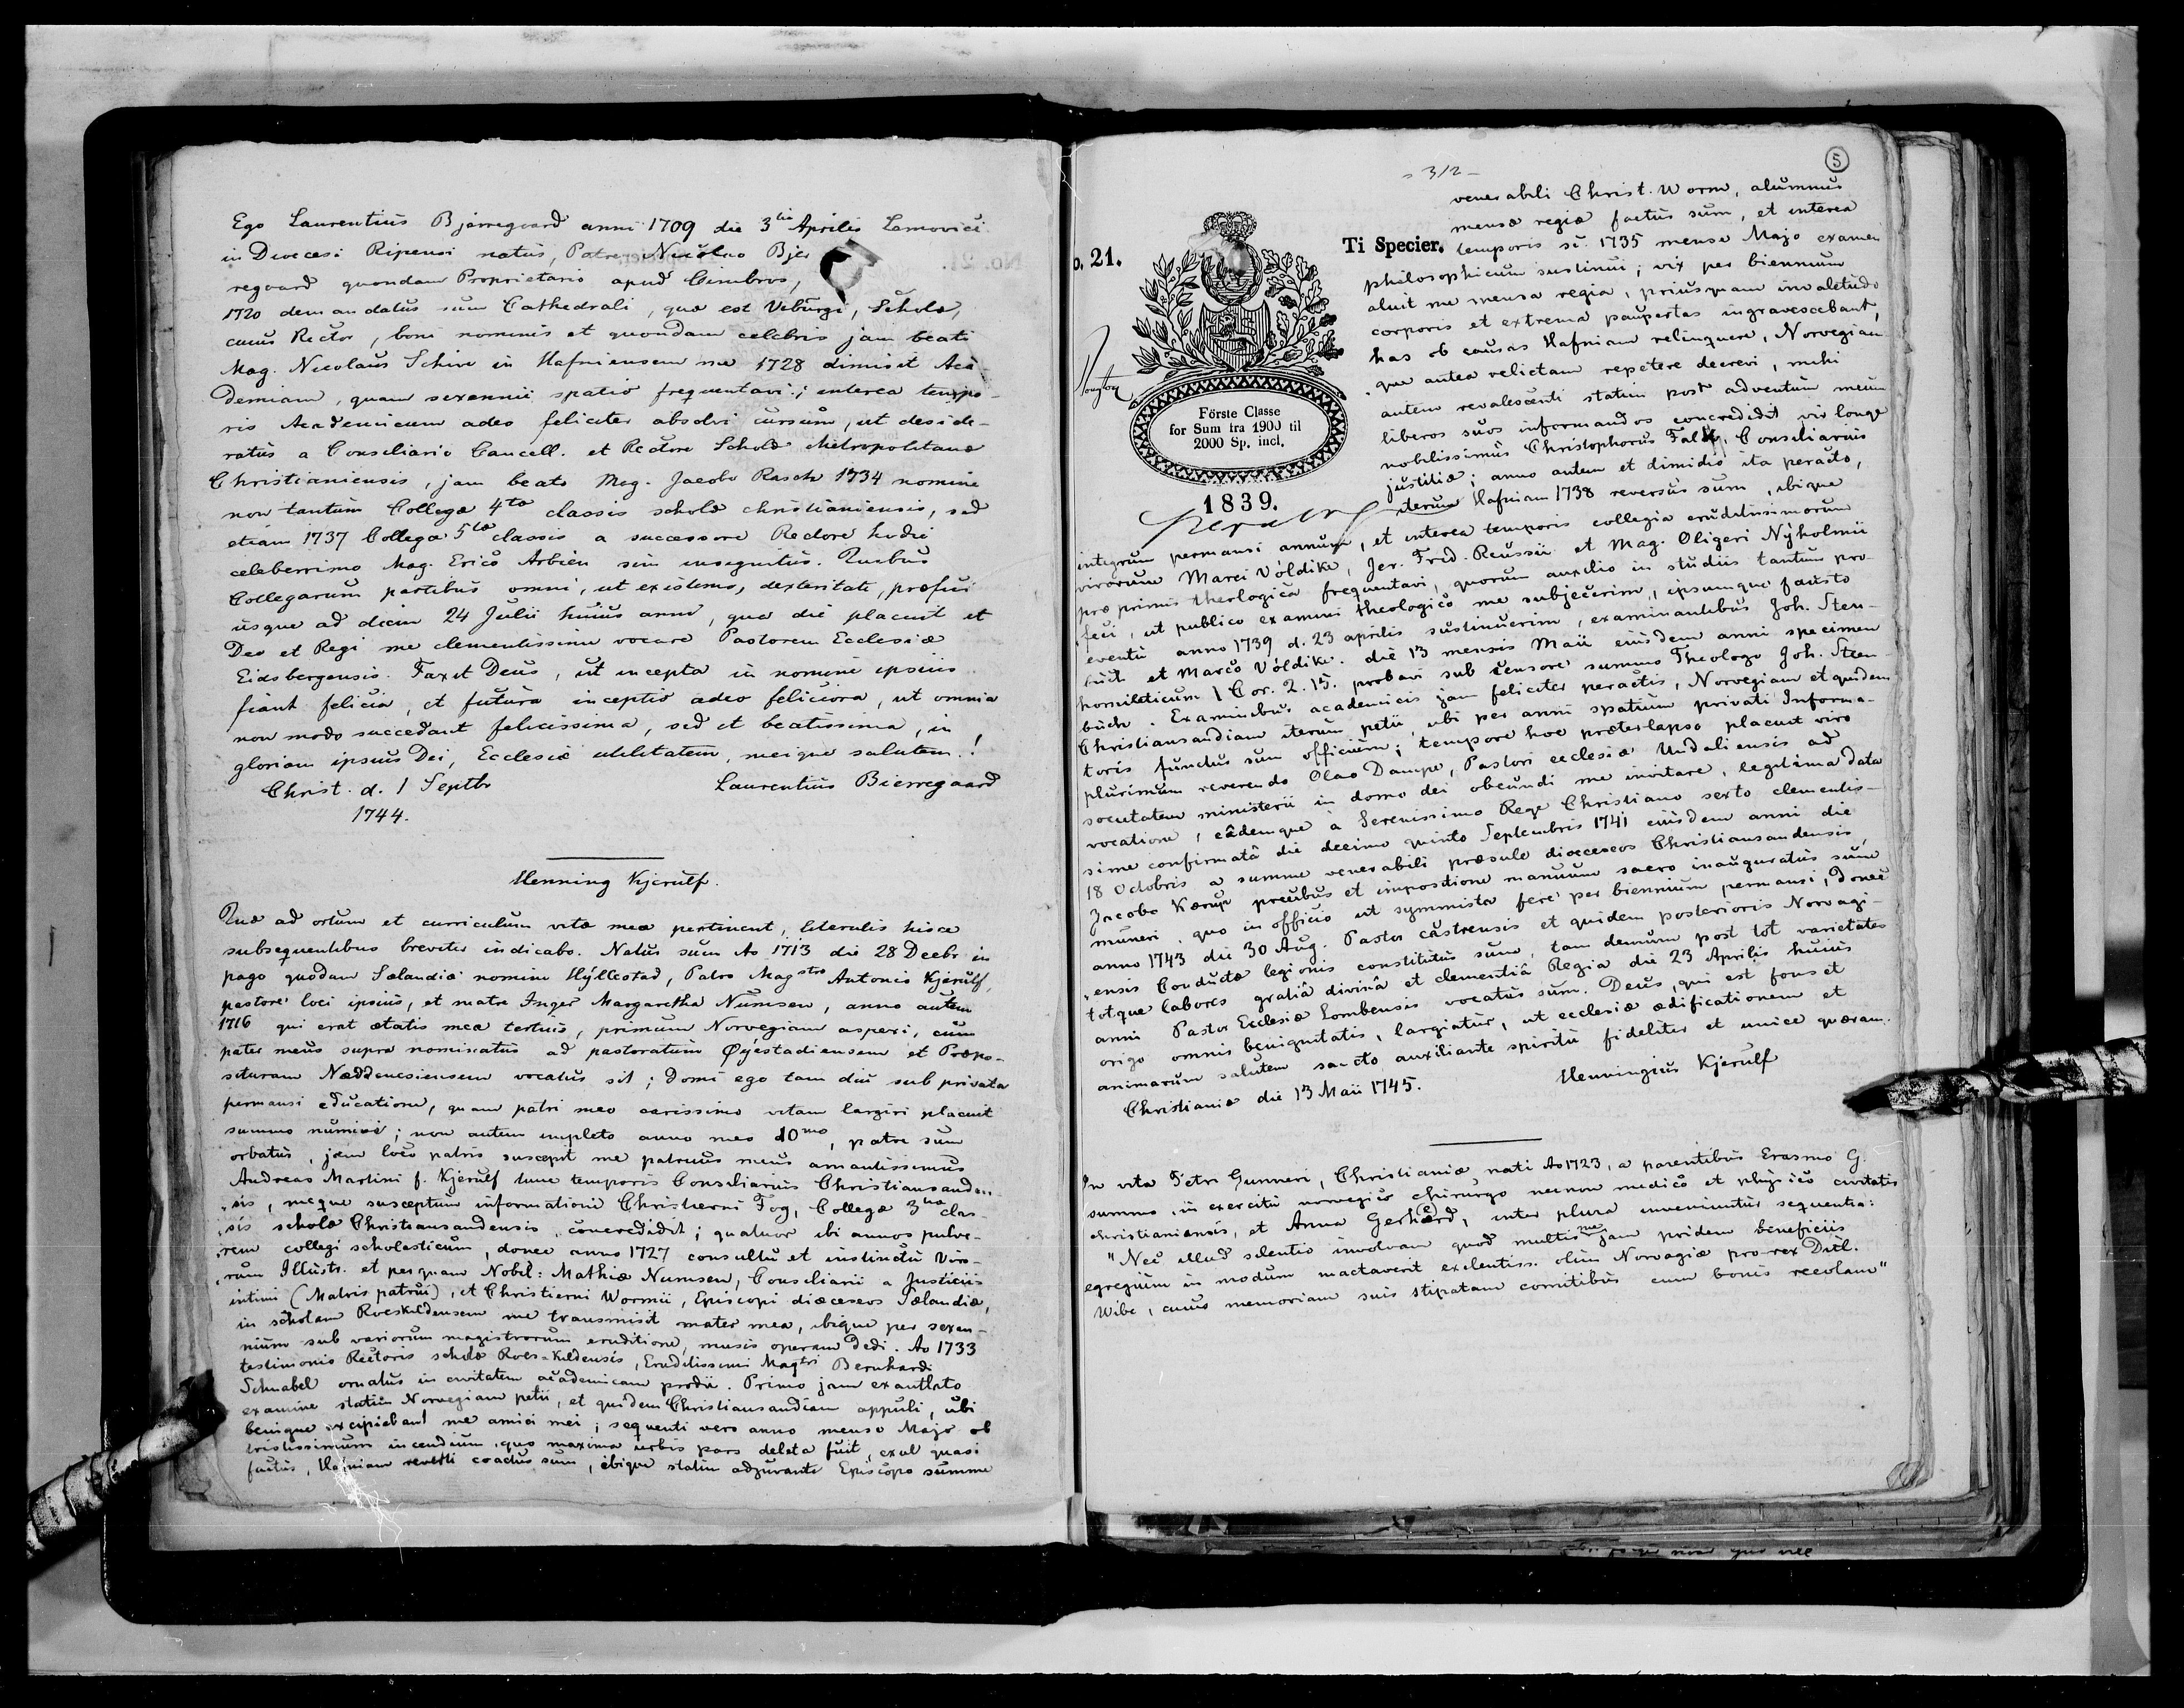 Ego Laurentius Bjerregaard anni 1709 die 3tia Aprilis Lemovici
in Diœcesi Ripensi natus, Patre Nicolao Bjer
regaard quondam Proprietario apud Cimbros,
1720 demandatus sum Cathedrali, quæ est Viburgi, Scholæ,
cuius Rector, boni nominis et quondam celebris jam beati
Mag. Nicolaus Schive in Hafniensem me 1728 dimisit Aca-
demiam, quam sexennii spatio frequentavi; interea tempo-
ris Academicum adeo feliciter absolvi cursum, ut deside-
ratus a Consiliario Cancell. et Rectore Scholæ Metropolitanæ
Christianiensis, jam beato Mag. Jacobo Rasch 1734 nomine
non tantum Collegæ 4tæ classis scholæ christianiensis, sed
etiam 1737 Collegæ 5tæ classis a successore Rectore hodie
celeberrimo Mag. Erico Arbien sim insignitus. Quibus
Collegarum partibus omni, ut existimo, dexteritate, præfui
usque ad diem 24 Julii huius anni, qua die placuit et
Deo et Regi me clementissime vocare Pastorem Ecclesiæ
Eidsbergensis. Faxit Deus, ut incepta in nomine ipsius
fiant felicia, et futura inceptio adeo feliciora, ut omnia
non modo succedant felicissima, sed et beatissima, in
gloriam ipsius Dei, Ecclesiæ utilitatem, meique salutem!
Christ. d. 1 Septbr Laurentius Bierregaard
1744.
Henning Kjerulf.
Quæ ad ortum et curriculum vitæ meæ pertinent, literulis hisce
subsequentibus breviter indicabo. Natus sum Ao 1713 die 28 Decbr in
pago quodam Sælandiæ nomine Hyllestad, Patre Magstro Antonio Kjerulf,
pastore loci ipsius, et matre Inger Margaretha Numsen, anno autem
1716 qui erat ætatis meæ tertius, primum Norvegiam aspexi, cum
pater meus supra nominatus ad pastoratum Øyestadiensem et Præpo-
situram Næddenesiensem vocatus sit; domi ego tam diu sub privata
permansi educatione, quam patri meo carissimo vitam largiri placuit
summo numini; non autem impleto anno meo 10mo, patre sum
orbatus, jam loco patris suscepit me patruus meus amantissimus
Andreas Martini f. Kjerulf tunc temporis Consiliarius Christiansanden-
sis, meque susceptum informationi Christierni Fog, Collegæ 3tiæ clas-
sis scholæ Christiansandensis, concredidit; quatuor ibi annos pulve-
rem collegi scholasticum, donec anno 1727 consultu et instinctu Viro-
rum Illustr. et perquam Nobil: Mathiæ Numsen, Consiliarii a Justiciis
intimi (Matris patrui), et Christierni Wormii, Episcopi diœceseos Sælandiæ,
in scholam Roeskildensem me transmisit mater mea, ibique per sexen-
nium sub variorum magistrorum eruditione, musis operam dedi. Ao 1733
testimonio Rectoris scholæ Roes-kildensis, Eruditissimi Magtri Bernhardi
Schnabel ornatus in civitatem academicam prodii. Primo jam exantlato
examine statim Norvegiam petii, et quidem Christiansandiam appuli, ubi
benigne excipiebant me amici mei; sequenti vero anno mense Majo ob
tristissimum incendium, quo maxima urbis pars deleta fuit, exul quasi
factus, Hafniam reverti coactus sum, ibique statim adjuvante Episcopo summe
5
312
venerabili Christ. Worm, alumnus
mensæ regiæ factus sum, et interea
temporis sc. 1735 mense Majo examen
philosophicum sustinui; vix per biennium
aluit me mensa regia, priusquam invaletudo
corporis et extrema paupertas ingravescebant,
has ob causas Hafniam relinquere, Norvegiam-
que antea relictam repetere decrevi, mihi
autem revalescenti statim post adventum meum
liberos suos informandos concredidit vir longe
nobilissimus Christophorus Falk, Consiliarius
justitiæ; anno autem et dimidio ita peracto,
iterum Hafniam 1738 reversus sum, ibique
o. 21.
Ti Specier.
Förste Classe
for Sum fra 1900 til
2000 Sp. incl.
1839.
integrum permansi annum, et interea temporis collegia eruditissimorum
virorum Marci Völdike, Jer. Frid. Reussii et Mag. Oligeri Nyholmii
præprimis theologica frequentavi, quorum auxilio in studiis tantum pro-
feci, ut publico examini theologico me subjecerim, ipsumque fausto
eventu anno 1739 d. 23 aprilis sustinuerim, examinantibus Joh. Steen-
buch et Marco Völdike. die 13 mensis Maii eiusdem anni specimen
homileticum 1 Cor. 2. 15. probavi sub censore summo Theologo Joh. Steen-
buch. Examinibus academicis jam feliciter peractis, Norvegiam et quidem
Christiansandiam iterum petii, ubi per anni spatium privati Informa-
toris functus sum officium; tempore hoc præterlapso placuit viro
plurimum reverendo Olao Dampe, Pastori ecclesiæ Undaliensis ad
societatem ministerii in domo dei obeundi me invitare, legitima data
vocatione, eâdemque à Serenissimo Rege Christiano sexto clementis-
sime confirmatâ die decimo quinto Septembris 1741 eiusdem anni die
18 Octobris a summe venerabili præsule diœceseos Christiansandensis,
Jacobo Kærup precibus et impositione manuum sacro inauguratus sum
muneri, quo in officio ut symmista fere per biennium permansi, donec
anno 1743 die 30 Aug. Pastor castrensis et quidem posterioris Norvagi-
ensis Conductæ legionis constitutus sum, tam demum post tot varietates
totque labores gratiâ divinâ et clementiâ Regia die 23 Aprilis huius
anni Pastor Ecclesiæ Lombensis vocatus sum. Deus, qui est fons et
origo omnis benignitatis, largiatur, ut ecclesiæ ædificationem et
animarum salutem sancto auxiliante spiritu fideliter et unice quæram.
Christianiæ die 13 Maii 1745. Henningius Kjerulf
In vita Petri Gunneri, Christianiæ nati Ao 1723, a parentibus Erasmo G.
summo in exercitu norvegico chirurgo necnon medico et physico civitatis
christianiensis, et Anna Gerhard, inter plura inveniuntur sequentia:
"Nec illud silentio involvam quod multis me jam pridem beneficiis
egregium in modum mactaverit exelentiss. olim Norvagiæ pro-rex Ditl.
Wibe, cuius memoriam suis stipatam comitibus cum bonis recolam"